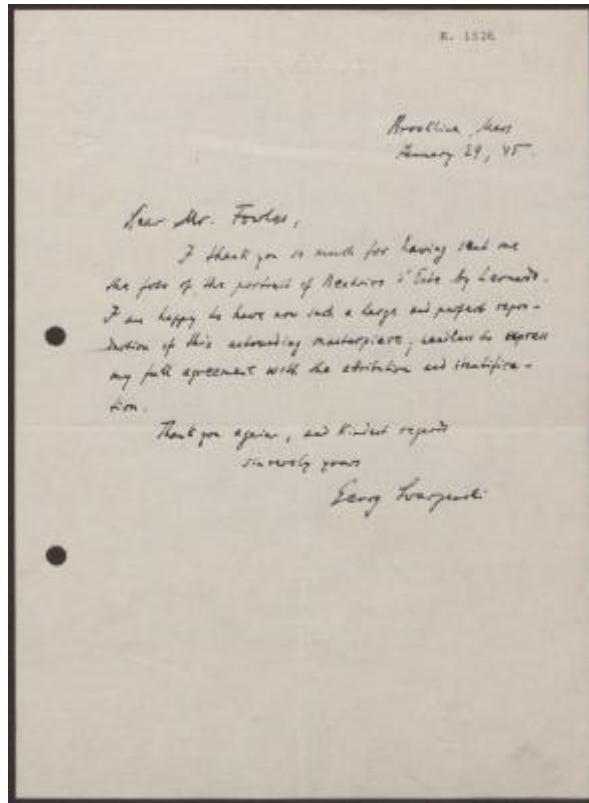 K. 1526
Brookline, Mass
January 29, 45.
Dear Mr. Fowles,
I thank you so much for having sent me
the foto of the portrait of Beatrice d'Este by Leonardo.
I am happy to have now such a large and perfect repro-
duction of this astounding masterpiece, needless to express
my full agreement with the attribution and identifica-
tion.
Thank you again, and kindest regards
sincerely yours
Georg Swarzenski